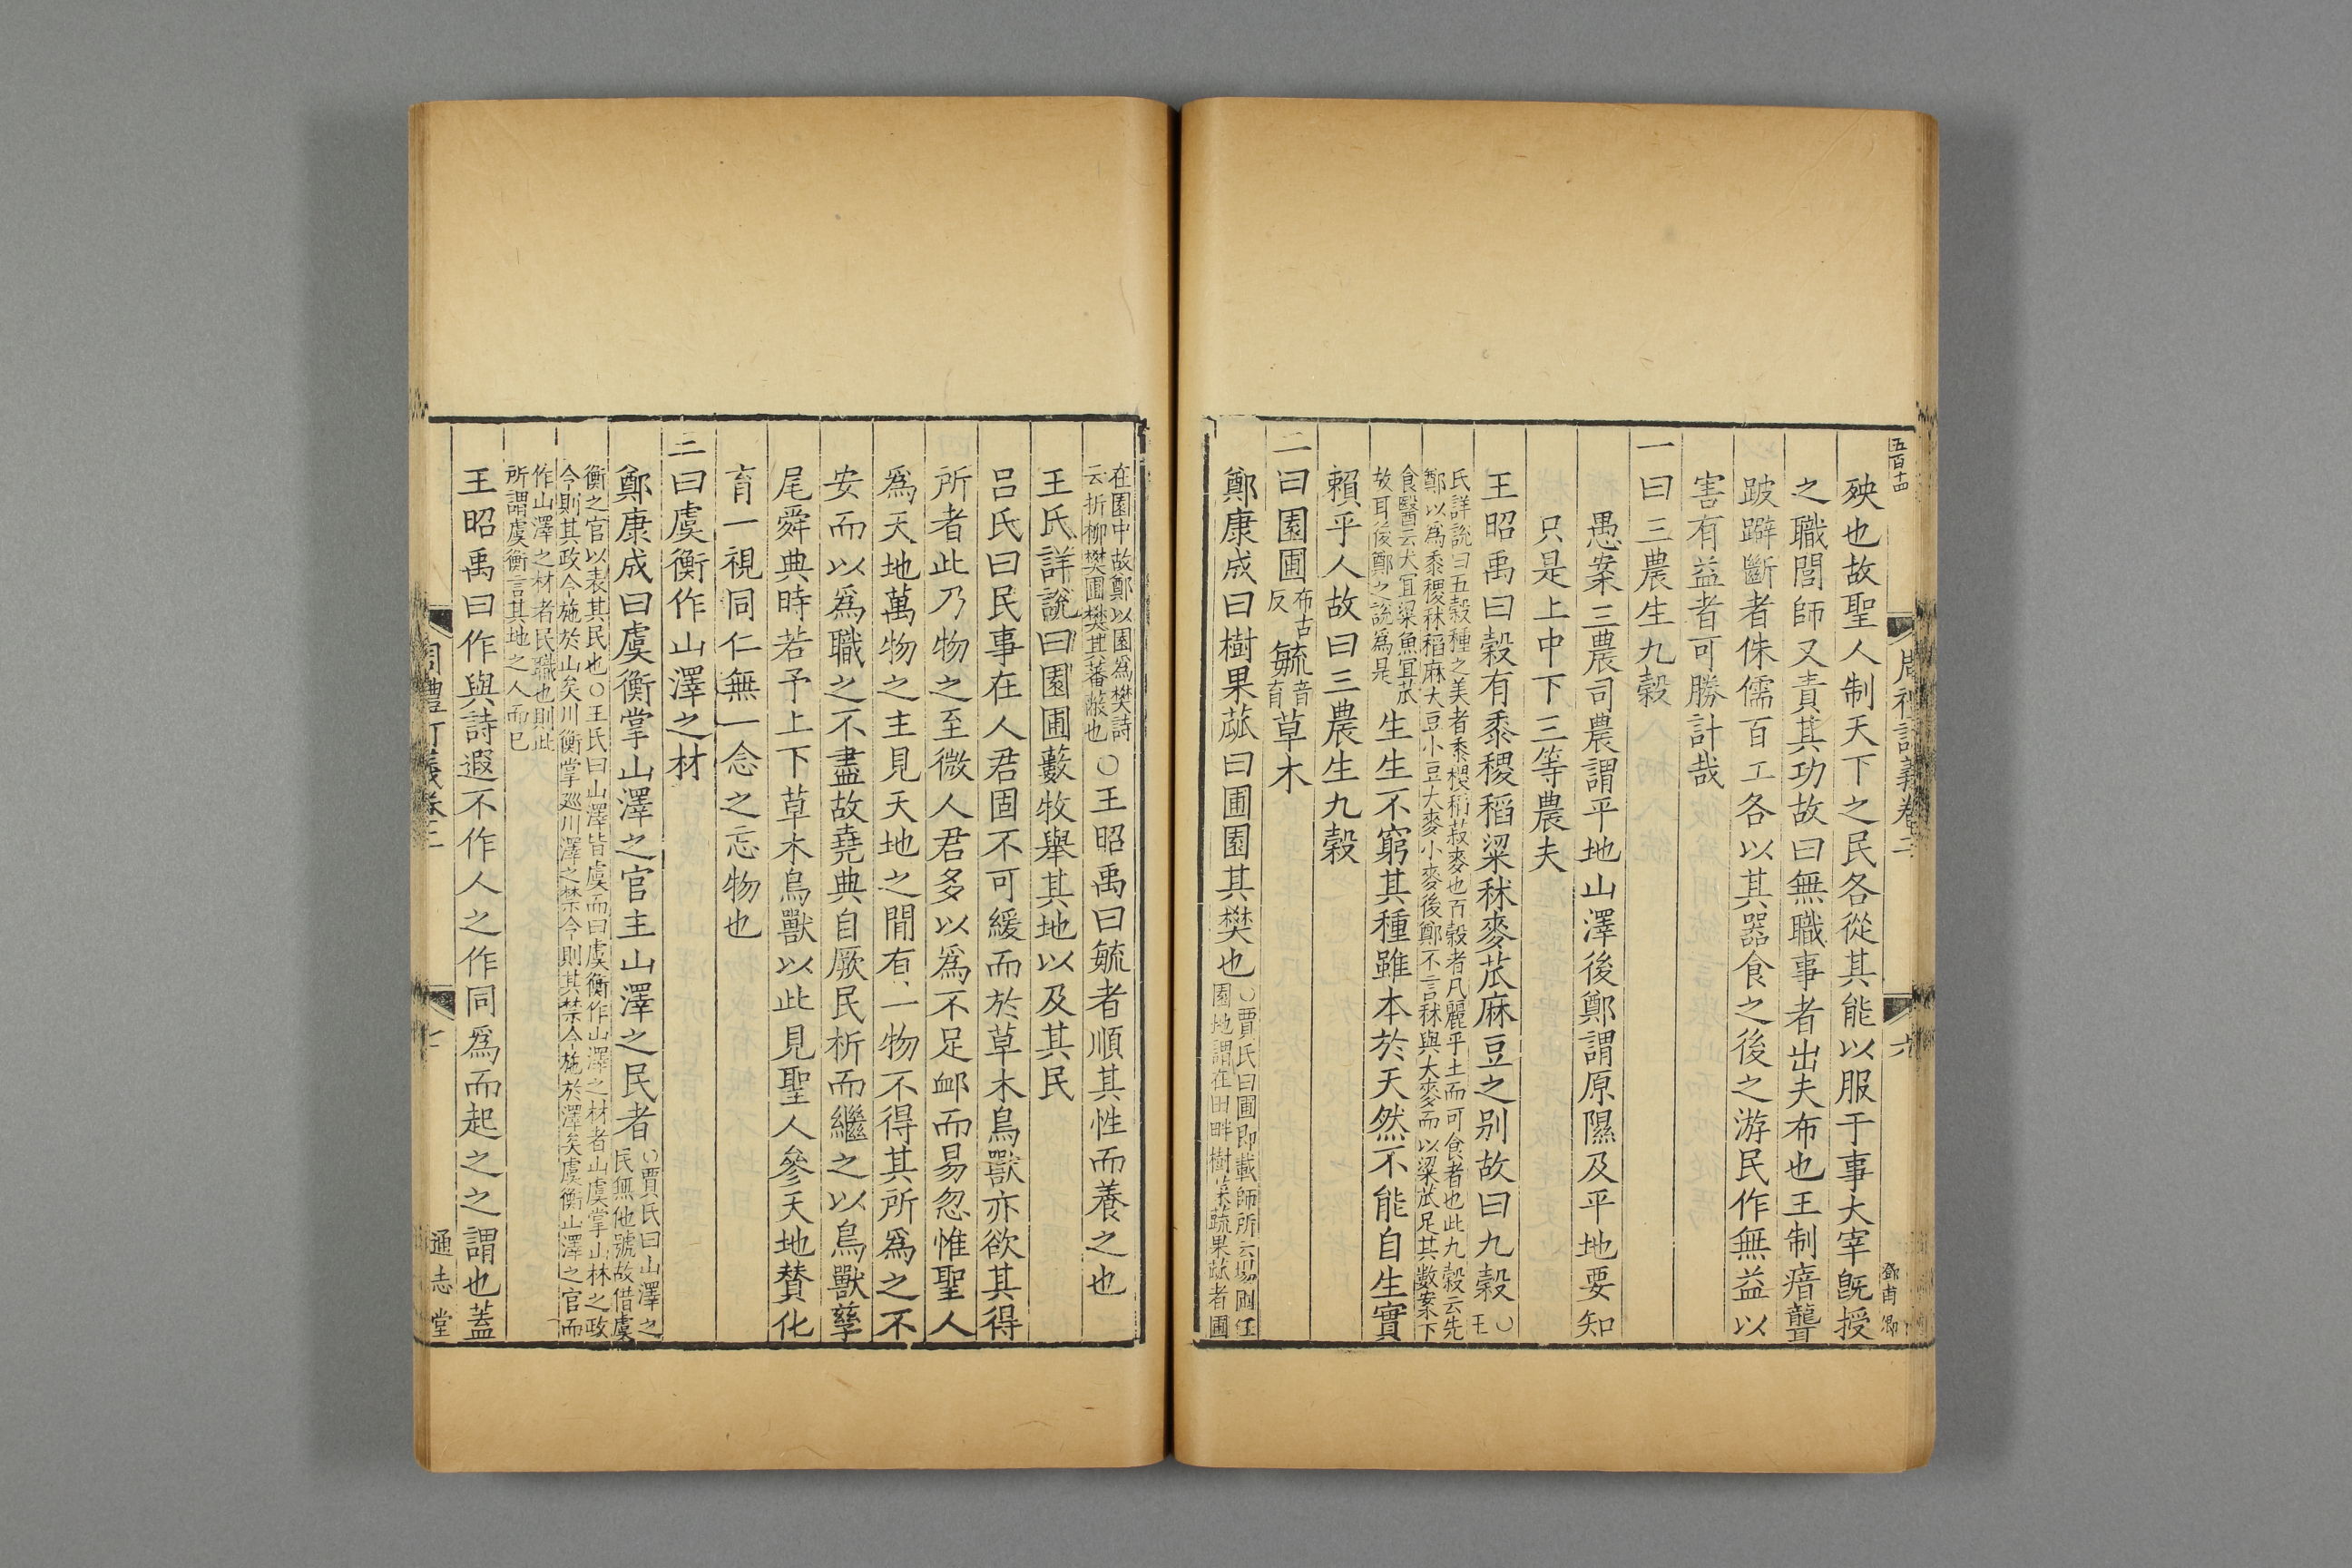 五百十四
周禮訂義卷二
六
鄧甫卿
殃也故聖人制天下之民各從其能以服于事大宰旣授
之職閭師又責其功故曰無職事者出夫布也王制瘖聾
跛躃斷者侏儒百工各以其器食之後之游民作無益以
害有益者可勝計哉
一曰三農生九穀
愚案三農司農謂平地山澤後鄭謂原隰及平地要知
只是上中下三等農夫
王昭禹曰穀有黍稷稻粱秫麥苽麻豆之别故曰九穀○王
氏詳說曰五穀種之美者黍稷稻菽麥也百穀者凡麗乎土而可食者也此九穀云先
鄭以為黍稷秫稻麻大豆小豆大麥小麥後鄭不言秫與大麥而以粱苽足其數案下
食醫云犬冝粱魚冝苽
故耳後鄭之說為是
生生不窮其種雖本於天然不能自生實
賴乎人故曰三農生九穀
二曰園圃布古反毓音育草木
鄭康成曰樹果蓏曰圃園其樊也
○賈氏曰圃即載師所云場圃任
園地謂在田畔樹菜蔬果蓏者圃
在園中故鄭以園為樊詩
云折柳樊圃樊其蕃蔽也
○王昭禹曰毓者順其性而養之也
王氏詳說曰園圃藪牧舉其地以及其民
呂氏曰民事在人君固不可緩而於草木鳥獸亦欲其得
所者此乃物之至微人君多以爲不足卹而易忽惟聖人
爲天地萬物之主見天地之閒有一物不得其所爲之不
安而以爲職之不盡故堯典自厥民析而繼之以鳥獸孳
尾舜典時若予上下草木鳥獸以此見聖人參天地贊化
育一視同仁無一念之忘物也
三曰虞衡作山澤之材
鄭康成曰虞衡掌山澤之官主山澤之民者
○賈氏曰山澤之
民無他號故借虞
衡之官以表其民也○王氏曰山澤皆虞而曰虞衡作山澤之材者山虞掌山林之政
令則其政令施於山矣川衡掌廵川澤之禁令則其禁令施於澤矣虞衡山澤之官而
作山澤之材者民職也則此
所謂虞衡言其地之人而已
王昭禹曰作與詩遐不作人之作同爲而起之之謂也蓋
周禮訂義卷二
七
通志堂